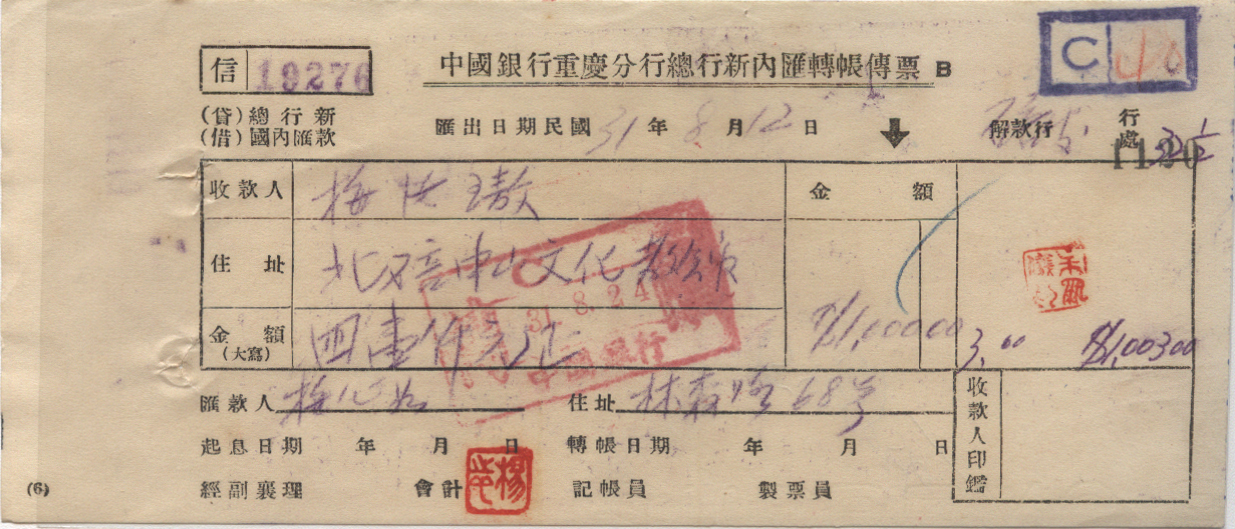 C
信 19276
中國銀行重慶分行總行新內匯轉帳傳票 B
(貸)總行新
(借)國內匯款
匯出日期民國31年8月12日
解款行
行處
收款人
金額
住址 北碚中山文化教
31. 8. 24
中國銀行
金額(大寫)
1,000 00
3.00
1,003 00
匯款人
住址 林森路68号
收款人印鑑
起息日期 年 月 日
轉帳日期 年 月 日
(6)
經副襄理
會計
楊
記帳員
製票員